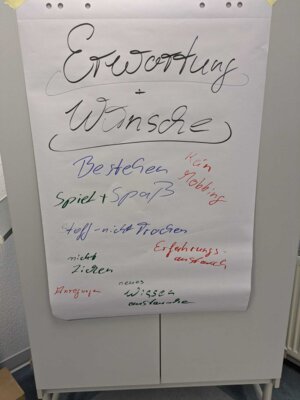 Erwartung
+
Wünsche
Bestehen
Kein
Mobbing
Spiel + Spaß
Stoff - nicht Trocken
Erfahrungs-
austausch
nicht
Ziehen
Anregungen
neues
Wissen